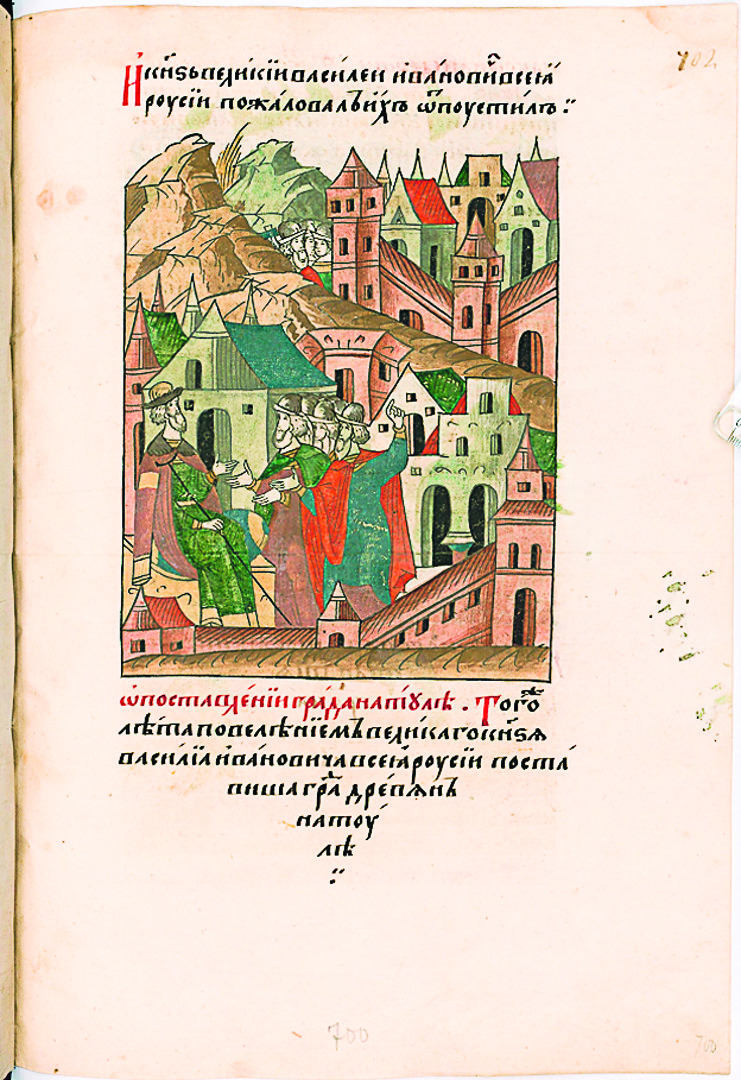 702
И кн҃ѕь великїи василеи ивановичь всеꙗ
роусїи пожаловалъ ихъ ѿпоустилъ :·
ѿ поставленїи града на тꙋлѣ . Того
лѣта повелѣнїемъ великаго кн҃ѕѧ
василїа ивановича всеꙗ роусїи поста
виша гра҃ древѧнъ
на тоу
лѣ
:·
700
700